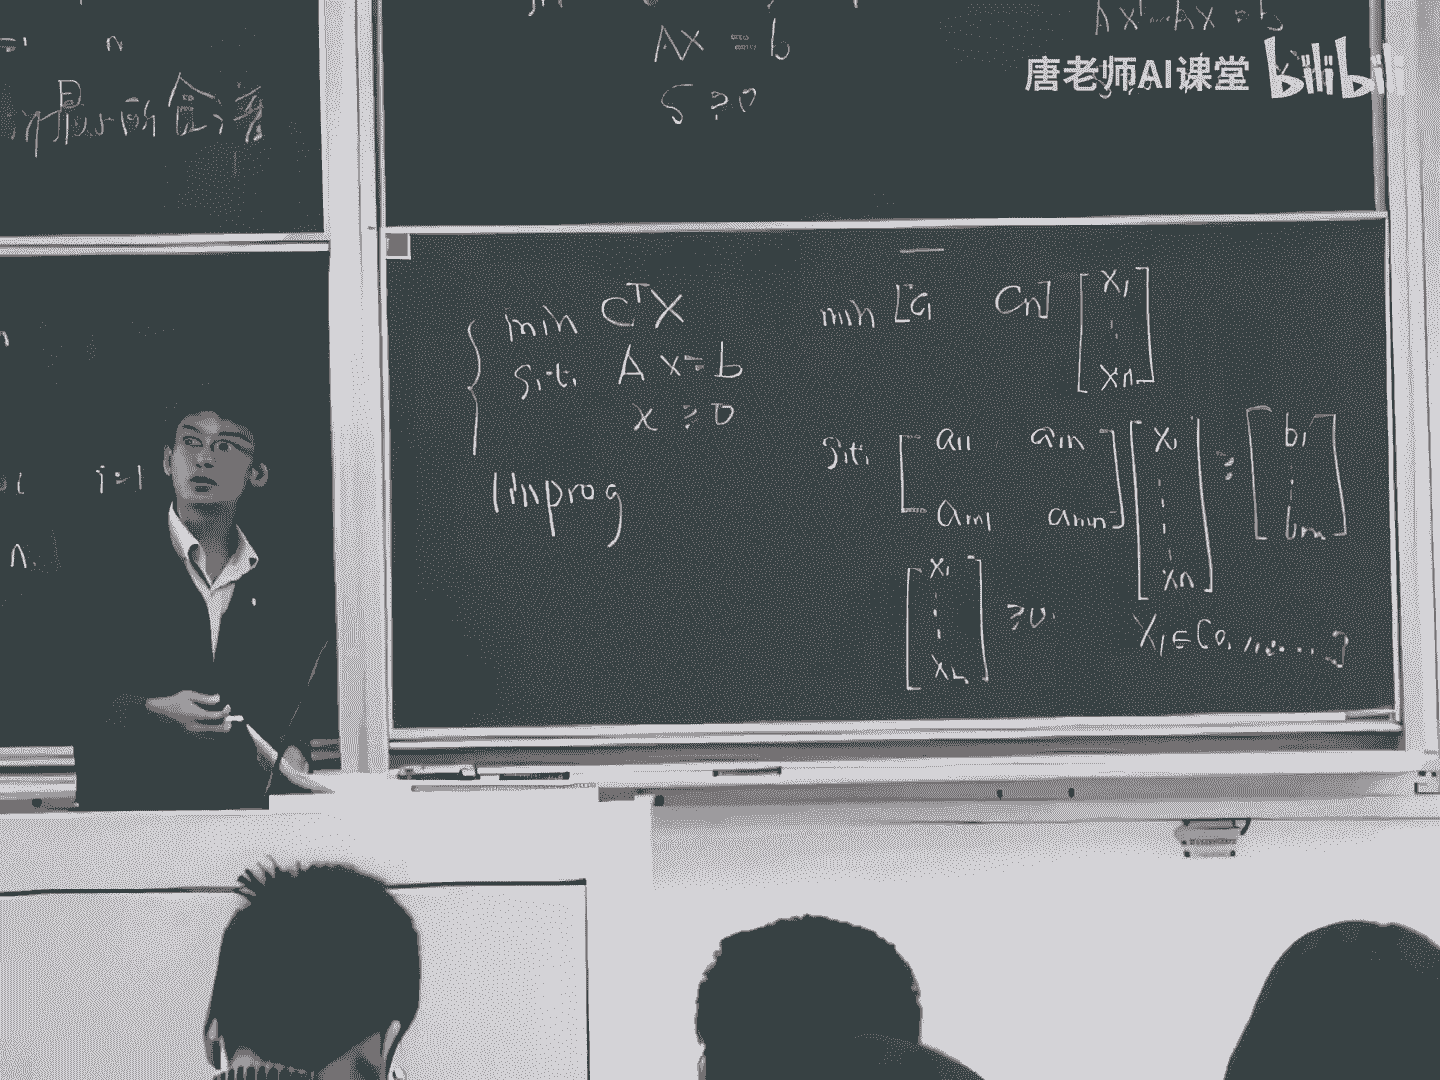 n
最小的食谱
i=1
n
Ax = b
S ≥ 0
唐老师AI课堂 bilibili
min C^T X
s.t. A x = b
x ≥ 0
linprog
min [c1 Cn] [x1 ⋮ xn]
s.t. [a11 a1n am1 amn] [x1 ⋮ xn] ≥ [b1 ⋮ bm]
[x1 ⋮ xn] ≥ 0.